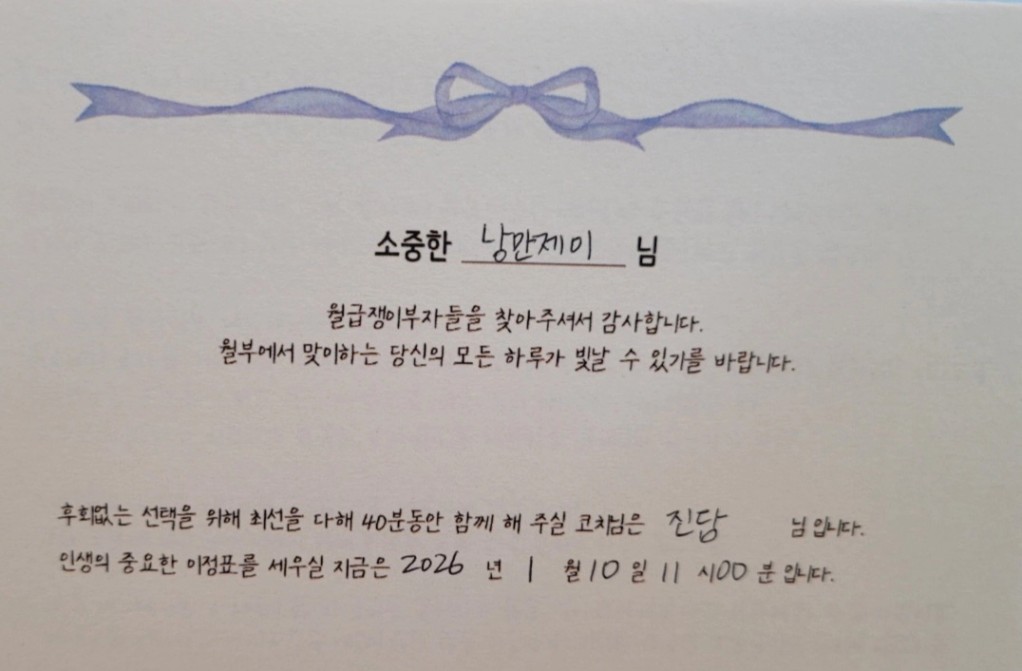 소중한 낭만제이 님
월급쟁이부자들을 찾아주셔서 감사합니다.
월부에서 맞이하는 당신의 모든 하루가 빛날 수 있기를 바랍니다.
후회없는 선택을 위해 최선을 다해 40분동안 함께 해 주실 코치님은 진담 님 입니다.
인생의 중요한 이정표를 세우실 지금은 2026 년 1 월 10 일 11 시 00 분 입니다.